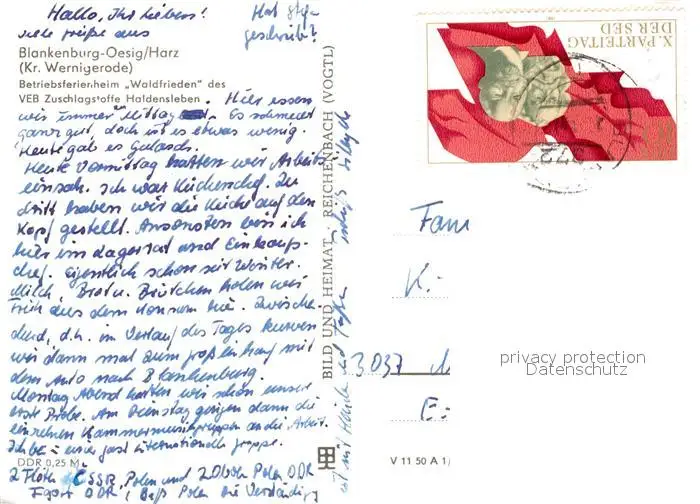 Hallo, Ihr Lieben!
viele Grüße aus
Hat Stefan
geschrieben?
Blankenburg-Oesig/Harz
(Kr. Wernigerode)
Betriebsferienheim „Waldfrieden" des
VEB Zuschlagstoffe Haldensleben.
Hier essen
wir immer Mittag. Es schmeckt
ganz gut, doch ist es etwas wenig.
Heute gab es Gulasch.
Heute Vormittag hatten wir Arbeits
einsatz. Ich war Küchenchef. Zu
dritt haben wir die Küche auf den
Kopf gestellt. Ansonsten bin ich
hier im Lagerrat und Einkaufs-
chef. Eigentlich schon seit Winter.
Milch, Brot u. Brötchen holen wir
früh aus dem Konsum hier. Zwische
durch, d.h. im Verlauf des Tages kurven
wir dann mal zum großen Einkauf mit
dem Auto nach Blankenburg.
Montag Abend hatten wir schon unsere
erste Probe. Am Dienstag gingen dann die
einzelnen Kammermusikgruppen an die Arbeit.
Ich bin in einer fast internationalen Gruppe.
DDR 0,25 M
2 Flöten ČSSR, Polen und 2 Oboen Polen DDR
Fagott DDR, Baß Polen Die Verständig
BILD UND HEIMAT REICHENBACH (VOGTL)
mit Händen und Füßen
X. PARTEITAG
DER SED
Fam
K.
3037 M
V 11 50 A 1/
privacy protection
Datenschutz